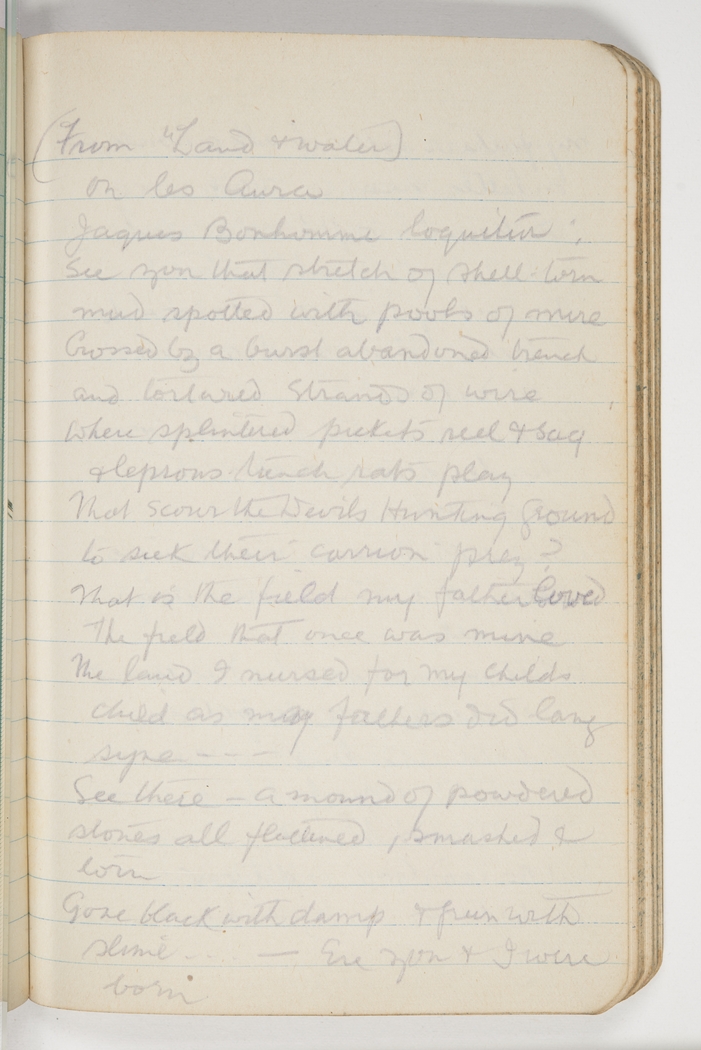 (From "Land & water)
On les Aura
Jaques Bonhomme loquitur ;
See you that stretch of shell-torn
mud spotted with pools of mire
Crossed by a burst abandoned trench
and tortured Strands of wire
Where splintered pickets reel & sag
& leprous trench rats play
That scour the Devils Hunting Ground
to seek their carrion prey?
That is the field my father loved
The field that once was mine
The land I nursed for my childs
child as my fathers did lang
syne - - -
See there - a mound of powdered
stones all flattened, smashed &
torn
Gone black with damp & green with
slime .... — Ere you & I were
born